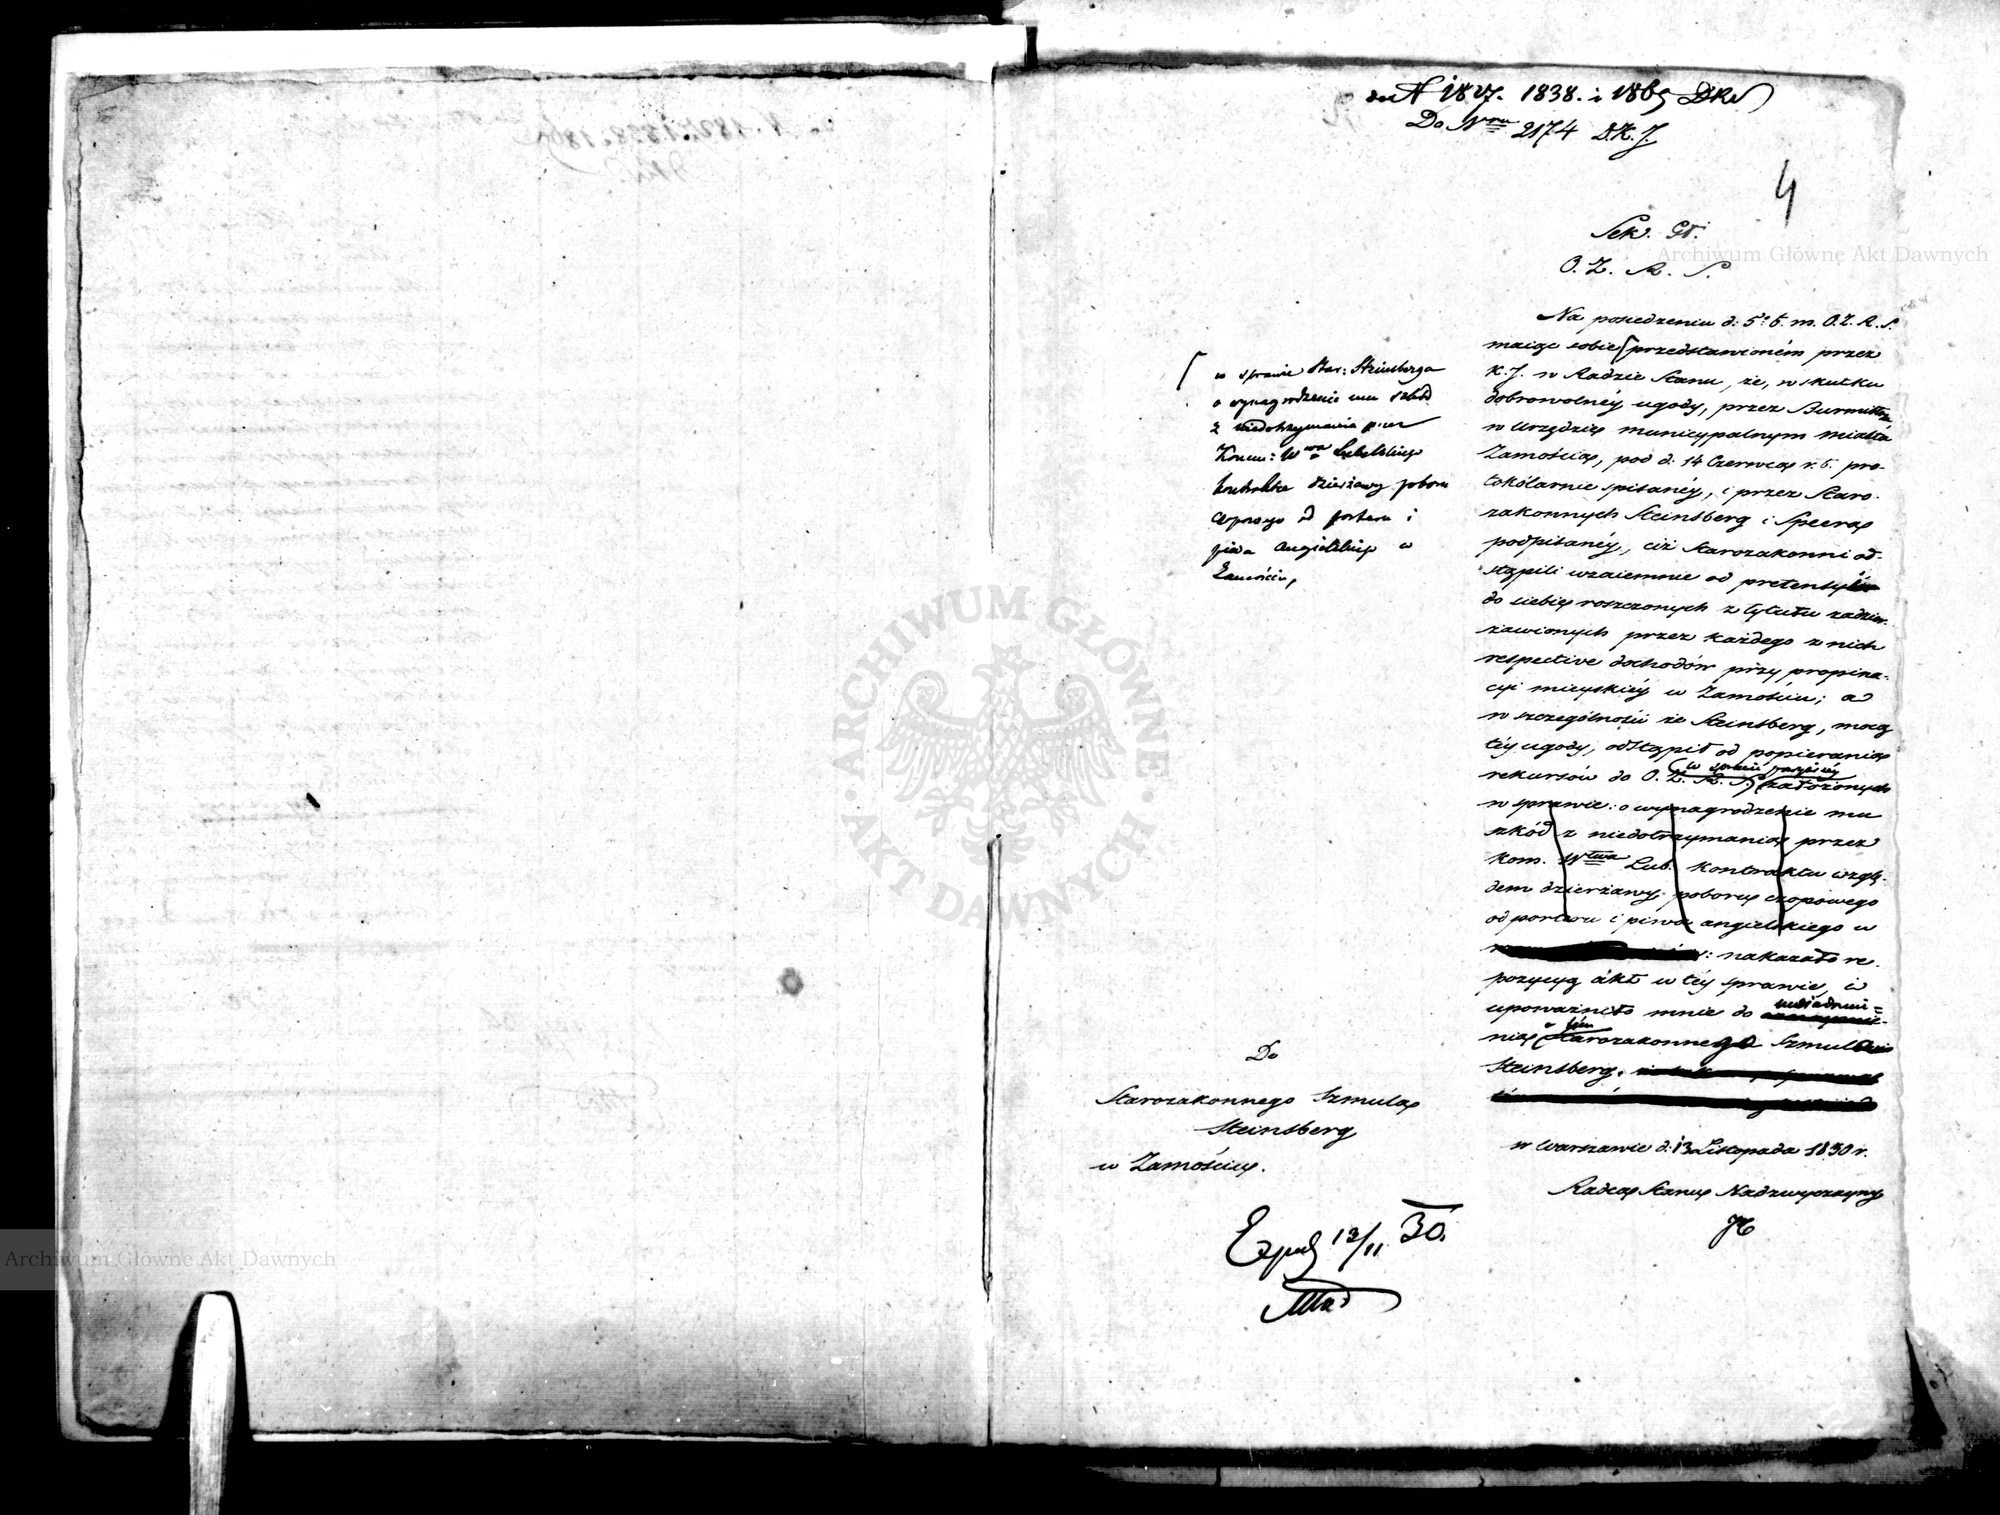 ad N 1827. 1838. i 1865 DKJ
Do Nru 2174 D.K.J.
4
Sek. Gł.
O. Z. R. S.
Na posiedzeniu d: 5º b. m. O.Z.R.S.
maiąc sobie przedstawioném przez
K.J. w Radzie Stanu, że, w skutku
dobrowolnéy ugody, przez Burmistrza
w Urzędzie municypalnym miasta
Zamościa, pod d: 14 Czerwca r. b. pro-
tokólarnie spisanéy, i przez Staro-
zakonnych Steinsberg i Speera
podpisanéy, ciż Starozakonni od-
stąpili wzaiemnie od pretensyi
do siebie roszczonych z tytułu zadzier-
żawionych przez każdego z nich
respective dochodów przy propina-
cyi mieyskiéy w Zamościu; a
w szczególności że Steinsberg, mocą
téy ugody, odstąpił od popierania
w sprawie powyższéy
rekursów do O. Z. R. S. założonych
w sprawie: o wynagrodzenie mu
szkód z niedotrzymania przez
Kom. Wtwa Lub. kontraktu wzglę-
dem dzierżawy poboru czopowego
od porteru i piwa angielskiego w
: nakazało re-
pozycyą akt w téy sprawie, i
upoważniło mnie do uwiadomie=
nia o tém Starozakonnego Szmula
Steinsberg.
w Warszawie d: 13 Listopada 1830 r.
Radca Stanu Nadzwyczayny
w sprawie Star: Steinsberga
o wynagrodzenie mu szkód
z niedotrzymania przez
Komm: Wwa Lubelskiego
kontraktu dzierżawy poboru
czopowego od porteru i
piwa Angielskiego w
Zamościu,
Do
Starozakonnego Szmula
Steinsberg
w Zamościu.
Exped 13/11 30.
Archiwum Główne Akt Dawnych
ARCHIWUM GŁÓWNE
· AKT DAWNYCH ·
Archiwum Główne Akt Dawnych